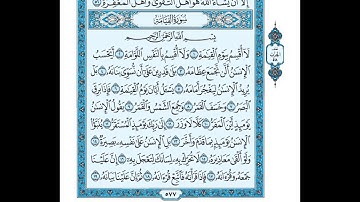 إِلَّا أَن يَشَاءَ اللَّهُ هُوَ أَهْلُ التَّقْوَىٰ وَأَهْلُ الْمَغْفِرَةِ ٥٦
سُورَةُ الْقِيَامَةِ
بِسْمِ اللَّهِ الرَّحْمَٰنِ الرَّحِيمِ
لَا أُقْسِمُ بِيَوْمِ الْقِيَٰمَةِ ١ وَلَا أُقْسِمُ بِالنَّفْسِ اللَّوَّامَةِ ٢ أَيَحْسَبُ
الْإِنسَٰنُ أَلَّن نَّجْمَعَ عِظَامَهُ ٣ بَلَىٰ قَٰدِرِينَ عَلَىٰ أَن نُّسَوِّيَ بَنَانَهُ ٤ بَلْ
يُرِيدُ الْإِنسَٰنُ لِيَفْجُرَ أَمَامَهُ ٥ يَسْـَٔلُ أَيَّانَ يَوْمُ الْقِيَٰمَةِ ٦ فَإِذَا بَرِقَ
الْبَصَرُ ٧ وَخَسَفَ الْقَمَرُ ٨ وَجُمِعَ الشَّمْسُ وَالْقَمَرُ ٩ يَقُولُ الْإِنسَٰنُ
يَوْمَئِذٍ أَيْنَ الْمَفَرُّ ١٠ كَلَّا لَا وَزَرَ ١١ إِلَىٰ رَبِّكَ يَوْمَئِذٍ الْمُسْتَقَرُّ ١٢ يُنَبَّؤُا الْإِنسَٰنُ
يَوْمَئِذٍ بِمَا قَدَّمَ وَأَخَّرَ ١٣ بَلِ الْإِنسَٰنُ عَلَىٰ نَفْسِهِ بَصِيرَةٌ ١٤
وَلَوْ أَلْقَىٰ مَعَاذِيرَهُ ١٥ لَا تُحَرِّكْ بِهِ لِسَانَكَ لِتَعْجَلَ بِهِ ١٦ إِنَّ عَلَيْنَا
جَمْعَهُ وَقُرْءَانَهُ ١٧ فَإِذَا قَرَأْنَٰهُ فَاتَّبِعْ قُرْءَانَهُ ١٨ ثُمَّ إِنَّ عَلَيْنَا بَيَانَهُ ١٩
٥٧٧